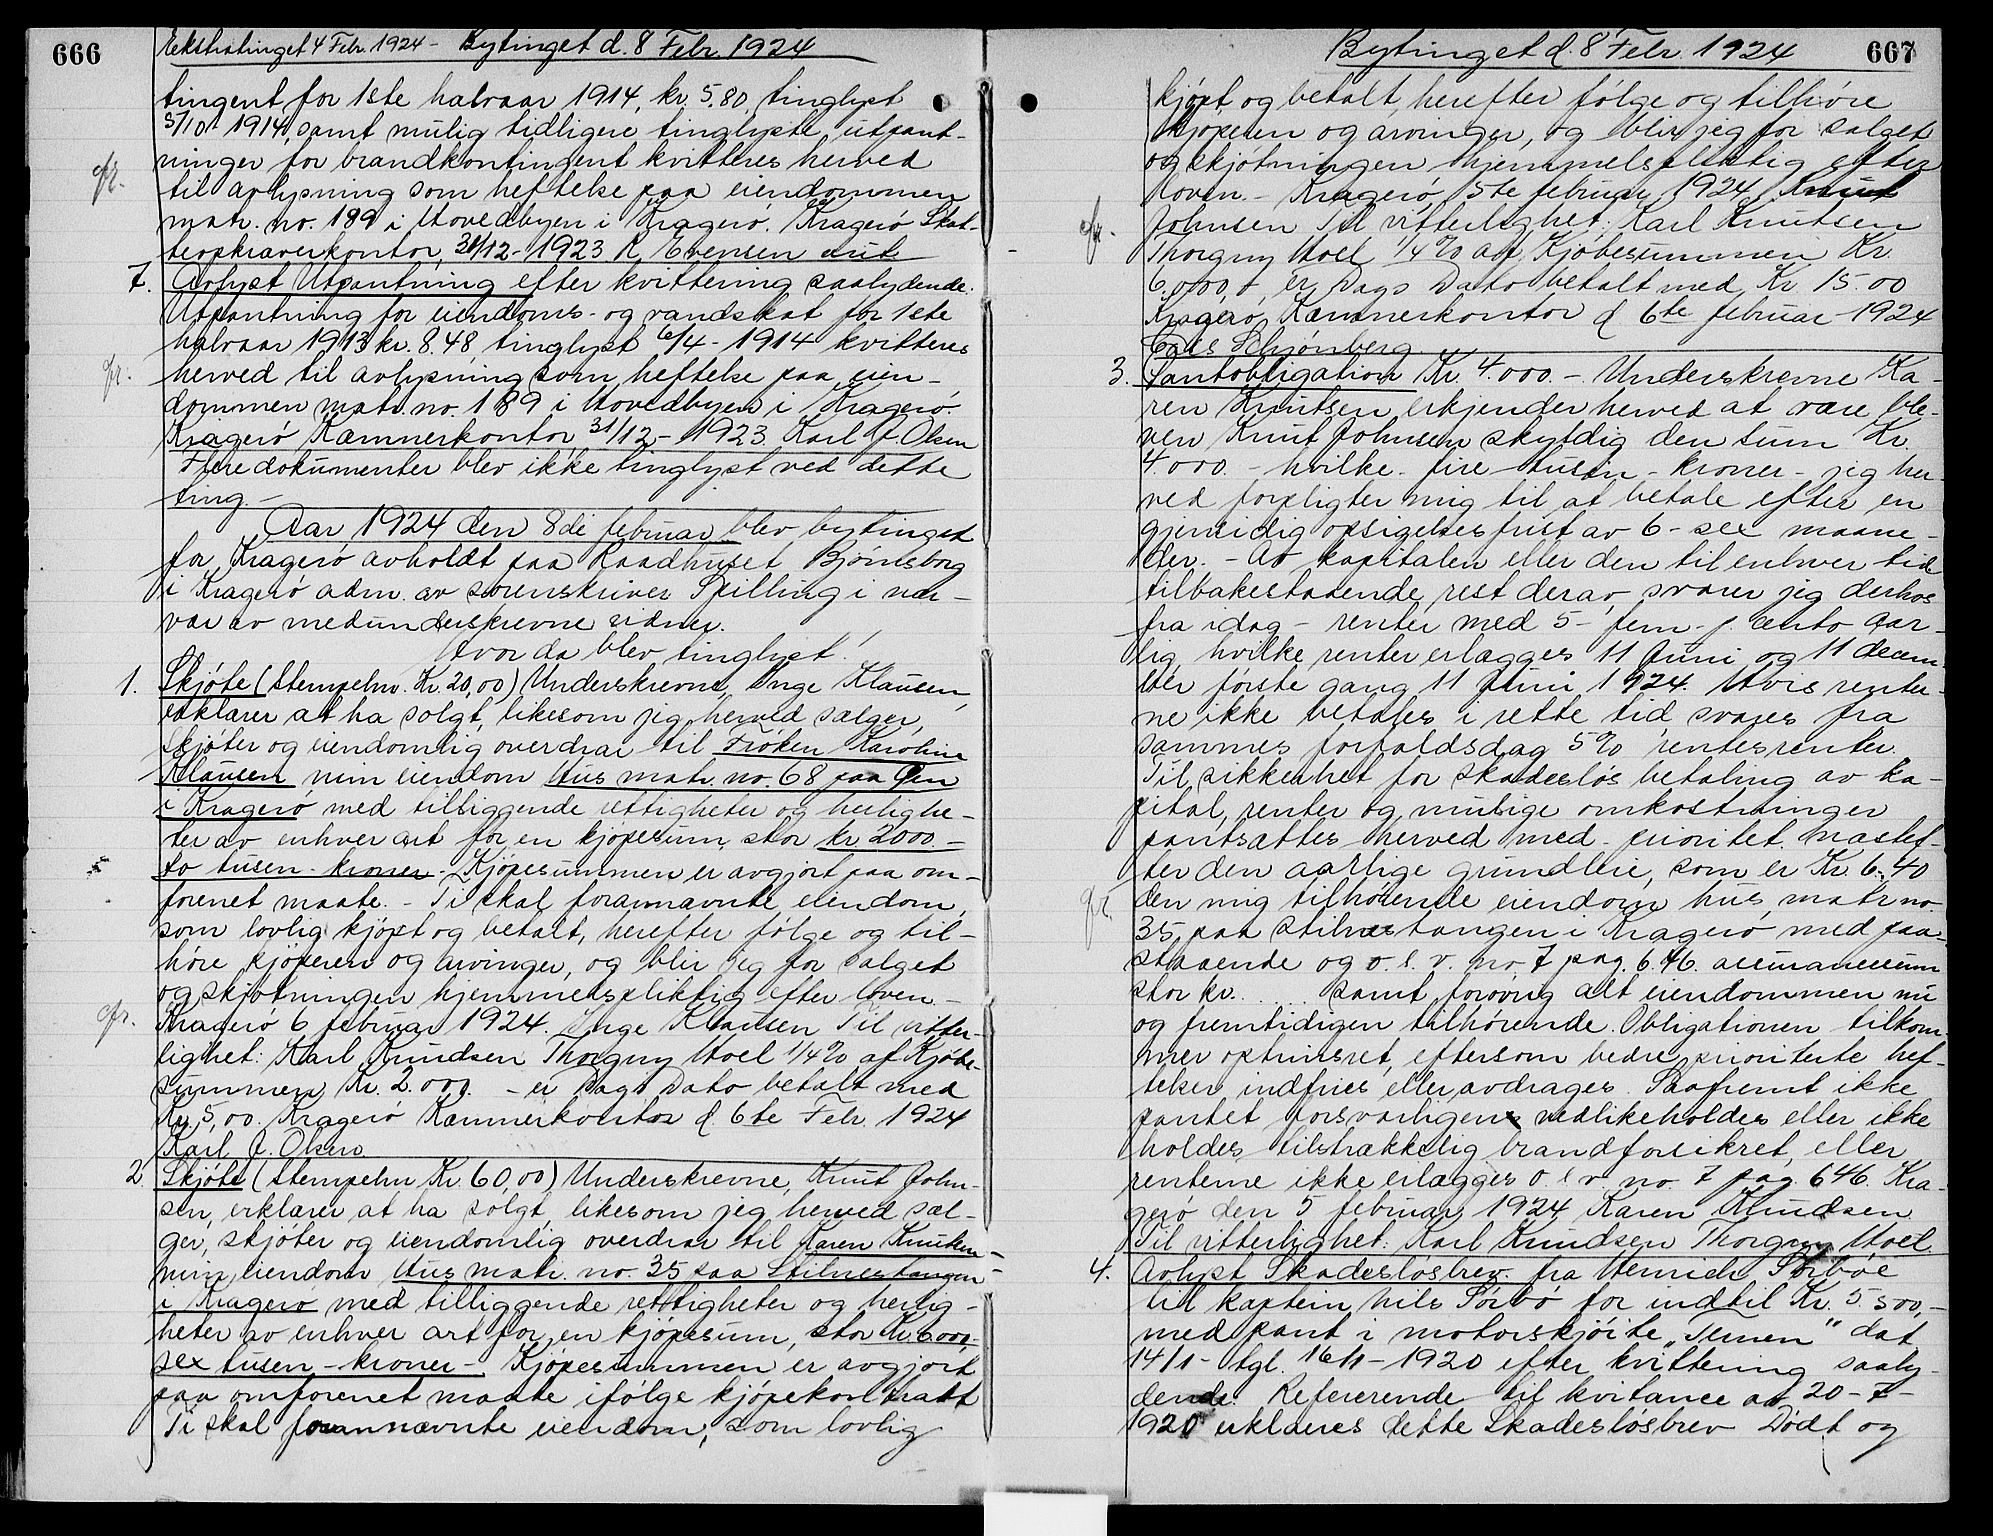 666
Eekstratinget 4 Febr. 1924 - Bytinget d. 8 Febr. 1924
tingent for 1ste halvaar 1914, kr. 5.80, tinglyst
5/10 1914, samt mulig tidligere tinglyste utpant-
ninger for brandkontingent kvitteres herved
til avlysning som heftelse paa eiendommen
matr. no. 189 i Hovedbyen i Kragerø. Kragerø Skat-
teopkræverkontor, 31/12 - 1923 R. Evensen
7. Avlyst Utpantning efter kvittering saalydende.
Utpantning for eiendoms- og vandskat for 1ste
halvaar 1913 kr. 8.48, tinglyst 6/4 - 1914 kvitteres
herved til avlysning som heftelse paa eien-
dommen matr. no. 189 i Hovedbyen i Kragerø.
Kragerø Kæmnerkontor, 31/12 - 1923. Karl J. Olsen
Flere dokumenter blev ikke tinglyst ved dette
ting. -
Aar 1924 den 8de februar blev bytinget
for Kragerø avholdt paa Raadhuset Bjørnsborg
i Kragerø adm. av sorenskriver Spilling i nær-
vær av medunderskrevne vidner.
Hvor da blev tinglyst!
1. Skjøte (Stempelm. Kr. 20,00) Underskrevne, Inge Klausen,
erklærer at ha solgt, likesom jeg herved sælger,
skjøter og eiendomlig overdrar til Frøken Karoline
Klausen min eiendom Hus matr. no. 68 paa Øen
i Kragerø med tilliggende rettigheter og herlighe-
ter av enhver art for en kjøpesum, stor kr. 2000. -
to tusen - kroner - Kjøpesummen er avgjort paa om-
forenet maate. - Ti skal forannævnte eiendom,
som lovlig kjøpt og betalt, herefter følge og til-
høre kjøperen og arvinger, og blir jeg for salget
og skjøtningen hjemmelspliktig efter loven. -
Kragerø 6 februar 1924. Inge Klausen Til vitter-
lighet: Karl Knudsen Thorguy Hoel 1/4 % af Kjøbe-
summen Kr. 2.000. - er Dags Dato betalt med
Kr. 5,00. Kragerø Kæmnerkontor d. 6te Febr. 1924
Karl J. Olsen
2. Skjøte (Stempelm Kr. 60,00) Underskrevne, Knut John-
sen, erklærer at ha solgt, likesom jeg herved sæl-
ger, skjøter og eiendomlig overdrar til Karen Knutsen -
min eiendom Hus matr. no. 35 paa Stilnestangen -
i Kragerø med tilliggende rettigheter og herlig-
heter av enhver art for en kjøpesum, stor Kr. 6.000, -
sex tusen - kroner -. Kjøpesummen er avgjort
paa omforenet maate ifølge kjøpekontrakt
Ti skal forannævnte eiendom, som lovlig
667
Bytinget d. 8 Febr. 1924
kjøpt og betalt, herefter følge og tilhøre
kjøperen og arvinger, og blir jeg for salget
og skjøtningen hjemmelspliktig efter
loven. - Kragerø, 5te februar 1924 Knut
Johnsen Til vitterlighet: Karl Knutsen
Thorguy Hoel 1/4 % af Kjøbesummen Kr.
6.000,0, er Dags Dato betalt med Kr. 15.00
Kragerø Kæmnerkontor d 6te februar 1924
Schjønberg
3. Pantobligation Kr. 4.000. - Underskrevne Ka-
ren Knutsen erkjender herved at være ble-
ven Knut Johnsen skyldig den sum Kr.
4.000. - hvilke - fire - tusen - kroner - jeg her-
ved forpligter mig til at betale efter en
gjensidig opsigelsesfrist av 6 - sex maane-
der. - Av kapitalen eller den til enhver tid
tilbakestaaende rest derav, svarer jeg derhos
fra idag - renter med 5 - fem - p. cento aar-
lig, hvilke renter erlægges 11 Juni og 11 decem-
ber første gang 11 Juni 1924. Hvis renter-
ne ikke betales i rette tid, svares fra
sammes forfaldsdag 5 % rentesrenter.
Til sikkerhet for skadesløs betaling av ka-
pital, renter og mulige omkostninger
pantsættes herved med prioritet næstef-
ter den aarlige grundleie, som er Kr. 6,40
den mig tilhørende eiendom hus matr no.
35 paa Stilnestangen i Kragerø med paa-
staaende og o. s. v. no. 7 pag. 646. assurancesum
stor kr. . . . . samt forøvrig alt eiendommen nu
og fremtidigen tilhørende. Obligationen tilkom-
mer optrinsret, eftersom bedre prioriterte hef-
telser indfries eller avdrages. Saafremt ikke
pantet forsvarligen vedlikeholdes eller ikke
holdes tilstrækkelig brandforsikret, eller
renterne ikke erlægges o. s v. no. 7 pag. 646. Kra-
gerø den 5 februar 1924 Karen Knudsen
Til vitterlighet: Karl Knudsen Thorguy Hoel.
4. Avlyst Skadesløsbrev fra Henrich Sørbøe
til kaptein Nils Sørbø for indtil Kr. 5.500,-
med pant i motorskjøite "Ternen" dat
14/1 - tgl. 16/1 - 1920 efter kvittering saaly-
dende: Refererende til kvitance av 20 - 7 -
1920 erklæres dette Skadesløsbrev Dødt og